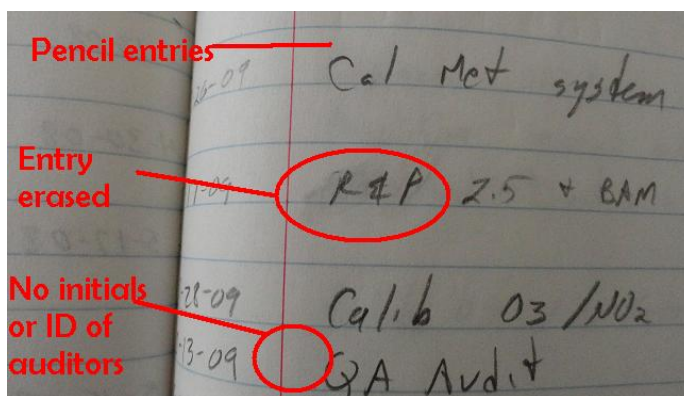 Pencil entries
26-09 Cal Met system
Entry
erased
-09 R & P 2.5 + BAM
No initials
or ID of
auditors
-28-09 Calib O3/NO2
-13-09 QA Audit